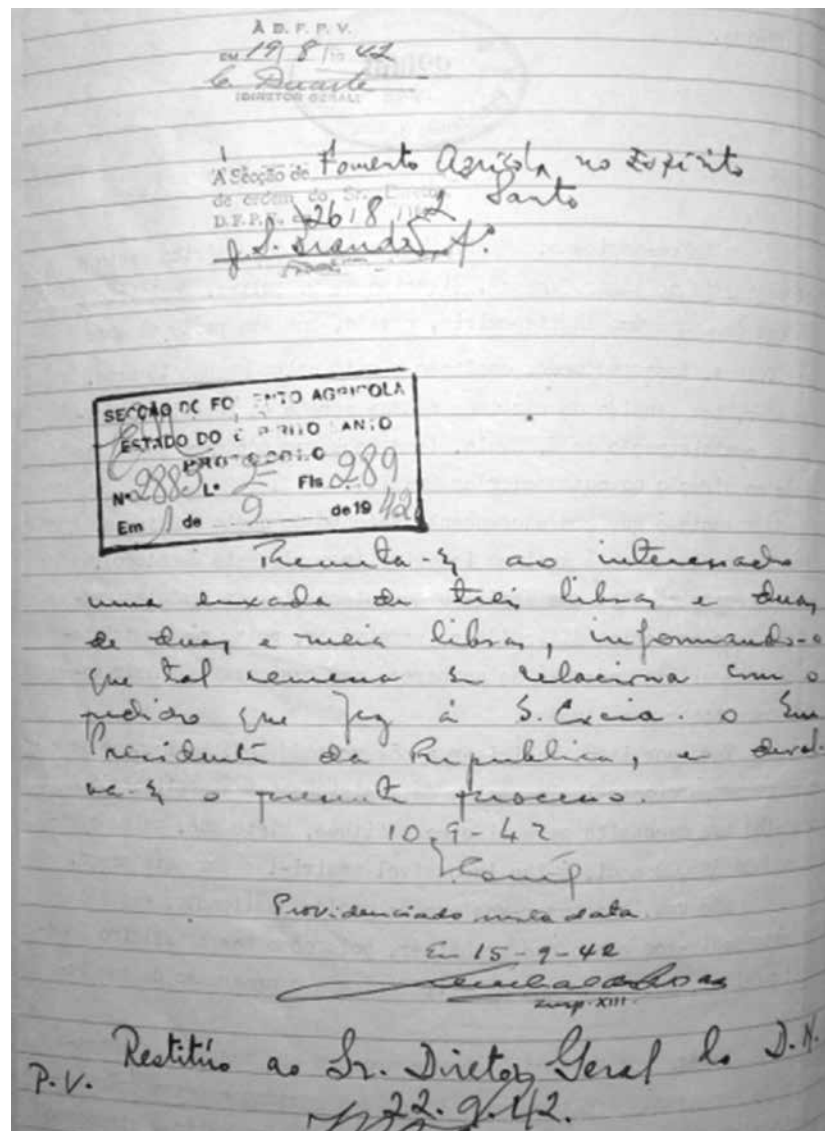 À D. F. P. V.
EM 19/ 8 /19 42
C. Duarte
(DIRETOR GERAL)
À Secção de Fomento Agrícola no Espírito
de ordem do Sr. Diretor Santo
D.F.P.V. 26 | 8 |
SECÇÃO DE FOMENTO AGRICOLA
ESTADO DO ESPIRITO SANTO
PROTOCOLO
Nº 2883 L° 2 Fls 289
Em 1 de 9 de 19 42
Remeta-se ao interessado
uma enxada de treis libras e duas
de duas e meia libras, informando-o
que tal remessa se relaciona com o
pedido que fez á S. Excia. o Snr
Presidente da Republica, e devol-
va-se o presente processo.
10-9-42
Providenciado nesta data
Em 15-9-42
Insp. XIII.
Restitúo ao Sr. Diretor Geral do D.N.
P.V.
22.9.42.